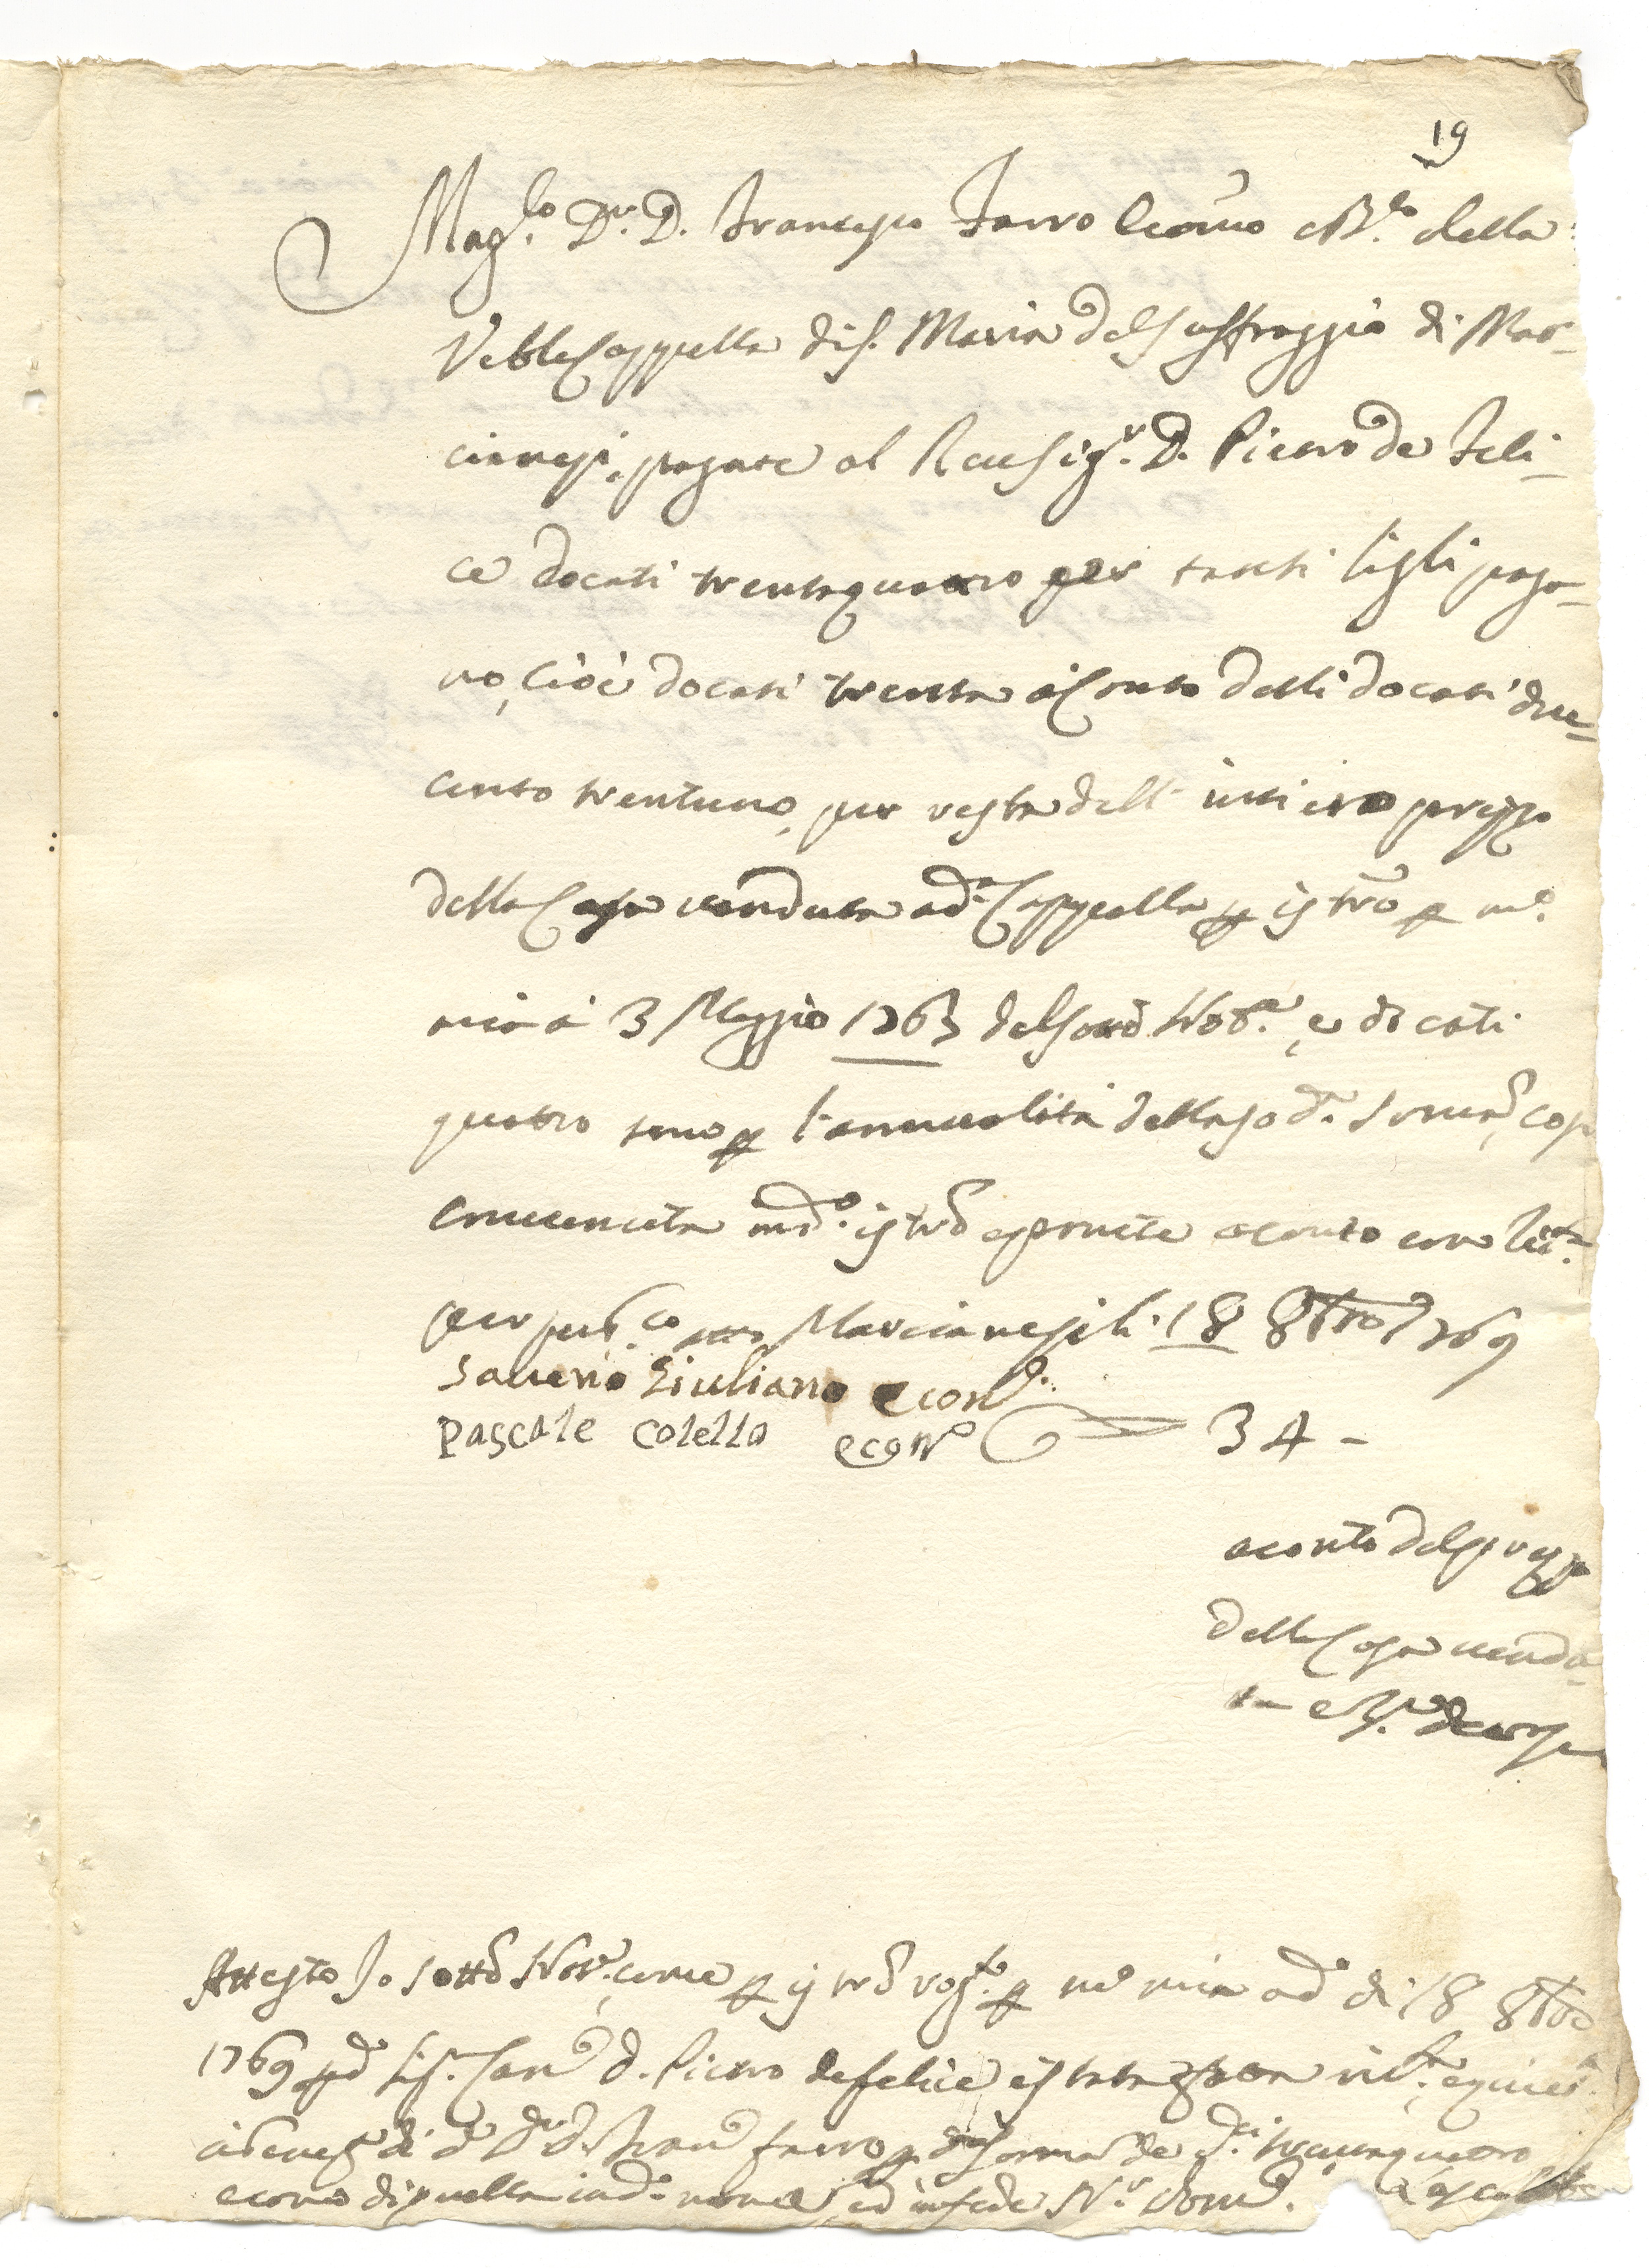 19
Mag.lo D.r D. Francesco Farro Economo della
Veble Cappella di S. Maria del Suffraggio di Mar-
cianesi, pagate al Reu Sig.r D. Pietro de Feli-
ce docati trentaquattro per tanti segli paga-
no, Cioè docati trenta à Conto delli docati due-
cento trentuno, per resta dell' intiero prezzo
della Casa venduta ad.a Cappella p istro p m.o
mia à 3 Maggio 1763 del Not.r, e docati
quattro sono p l'annualità della so d.a Soma, cosi
convenuta in d.o istro e ponete a conto con
per pub.co Marcianesi li 18 8bro 1769
Saverio Giuliano econ.o
Pascale Colella econ.o 34 -
a conto del prezzo
della Casa vendu-
ta
Attesto Io sotto Not.r, come p istro rog.to p m.o mia ad di 18 8bro
1769 Sig.r Can.o D. Pietro de felice
di d.o D.r D. Fran.o Farro p d.a soma de d.i trentaquattro
econo di quella in d.o nome, ed in fede N.r Dom.o